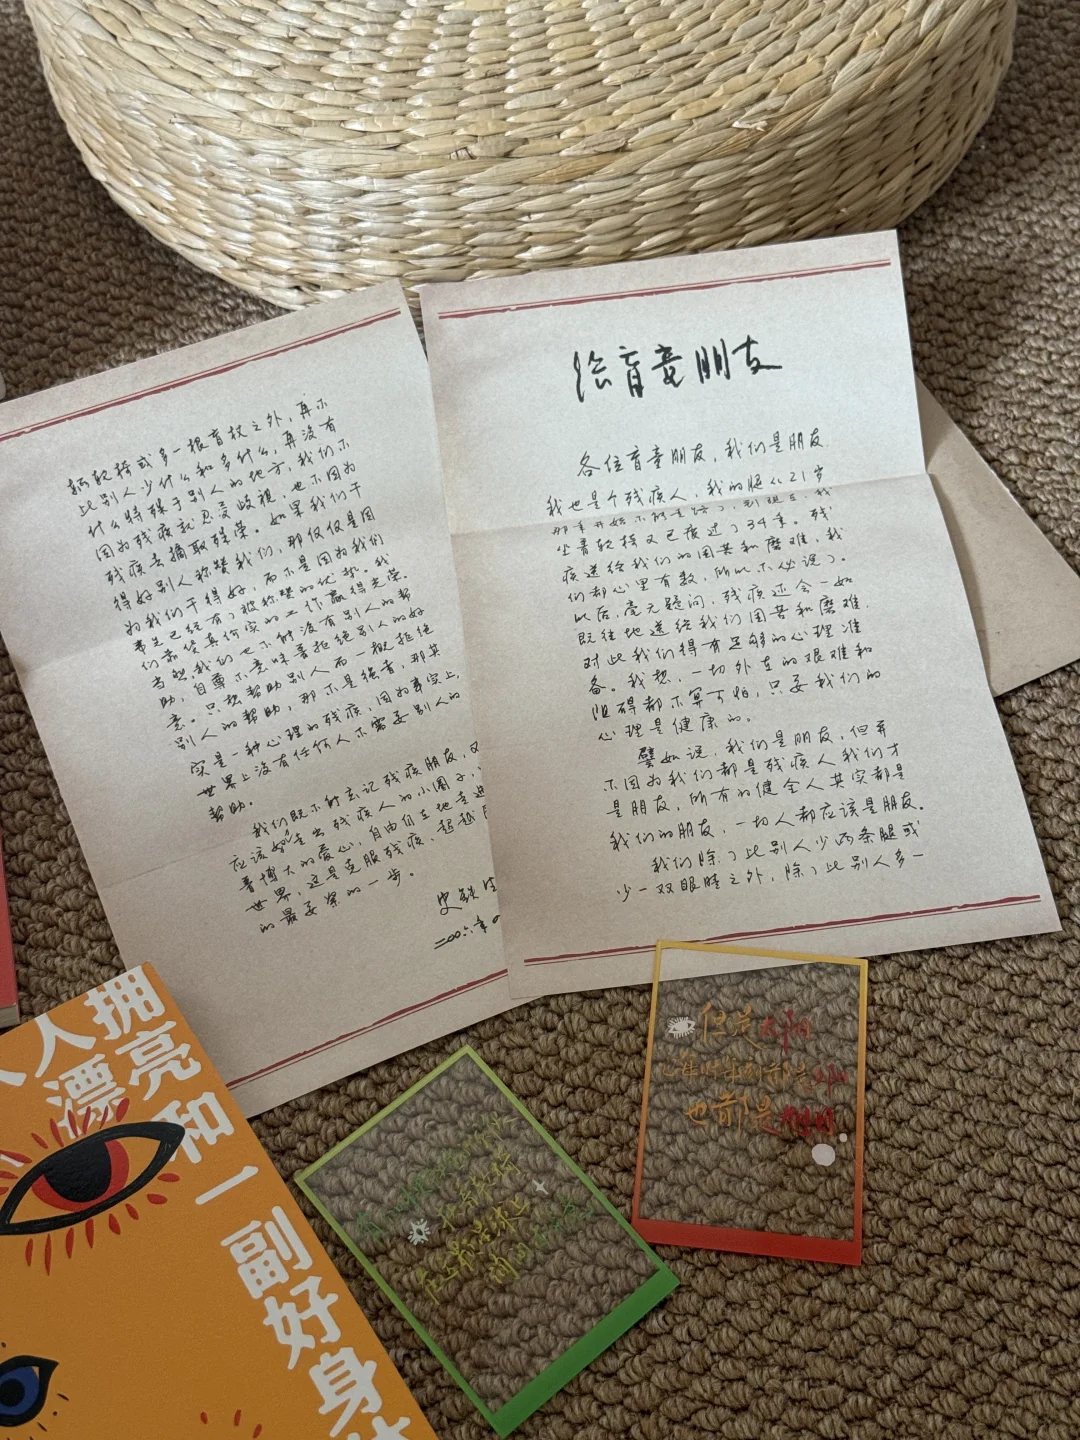 给盲童朋友
各位盲童朋友，我们是朋友
我也是个残疾人，我的腿从21岁
那年开始不能走路了，到现在，我
坐着轮椅又已度过了34年。残
疾送给我们的困苦和磨难，我
们都心里有数，所以不必说了。
以后，毫无疑问，残疾还会一如
既往地送给我们困苦和磨难，
对此我们得有足够的心理准
备。我想，一切外在的艰难和
阻碍都不算可怕，只要我们的
心理是健康的。
譬如说，我们是朋友，但并
不因为我们都是残疾人我们才
是朋友，所有的健全人其实都是
我们的朋友，一切人都应该是朋友。
我们除了比别人少两条腿或
少一双眼睛之外，除了比别人多一
辆轮椅或多一根盲杖之外，再不
比别人少什么和多什么，再没有
什么特殊于别人的地方，我们不
因为残疾就忍受歧视，也不因为
残疾去摘取殊荣。如果我们干
得好别人称赞我们，那仅仅是因
为我们干得好，而不是因为我们
事先已经有了被称赞的优势。我
们靠货真价实的工作赢得光荣。
当然，我们也不能没有别人的帮
助，自尊不意味着拒绝别人的好
意。只想帮助别人而一概拒绝
别人的帮助，那不是强者，那其
实是一种心理的残疾，因为事实上，
世界上没有任何人不需要别人的
帮助。
我们既不能忘记残疾朋友，又
应该努力走出残疾人的小圈子，
着博大的爱心，自由自在地走进
世界，这是克服残疾、超越
的最要紧的一步。
史铁生
二〇〇六年
人拥
漂亮
和一
副好
身
但是太阳
他每时每刻都是夕阳
也都是旭日